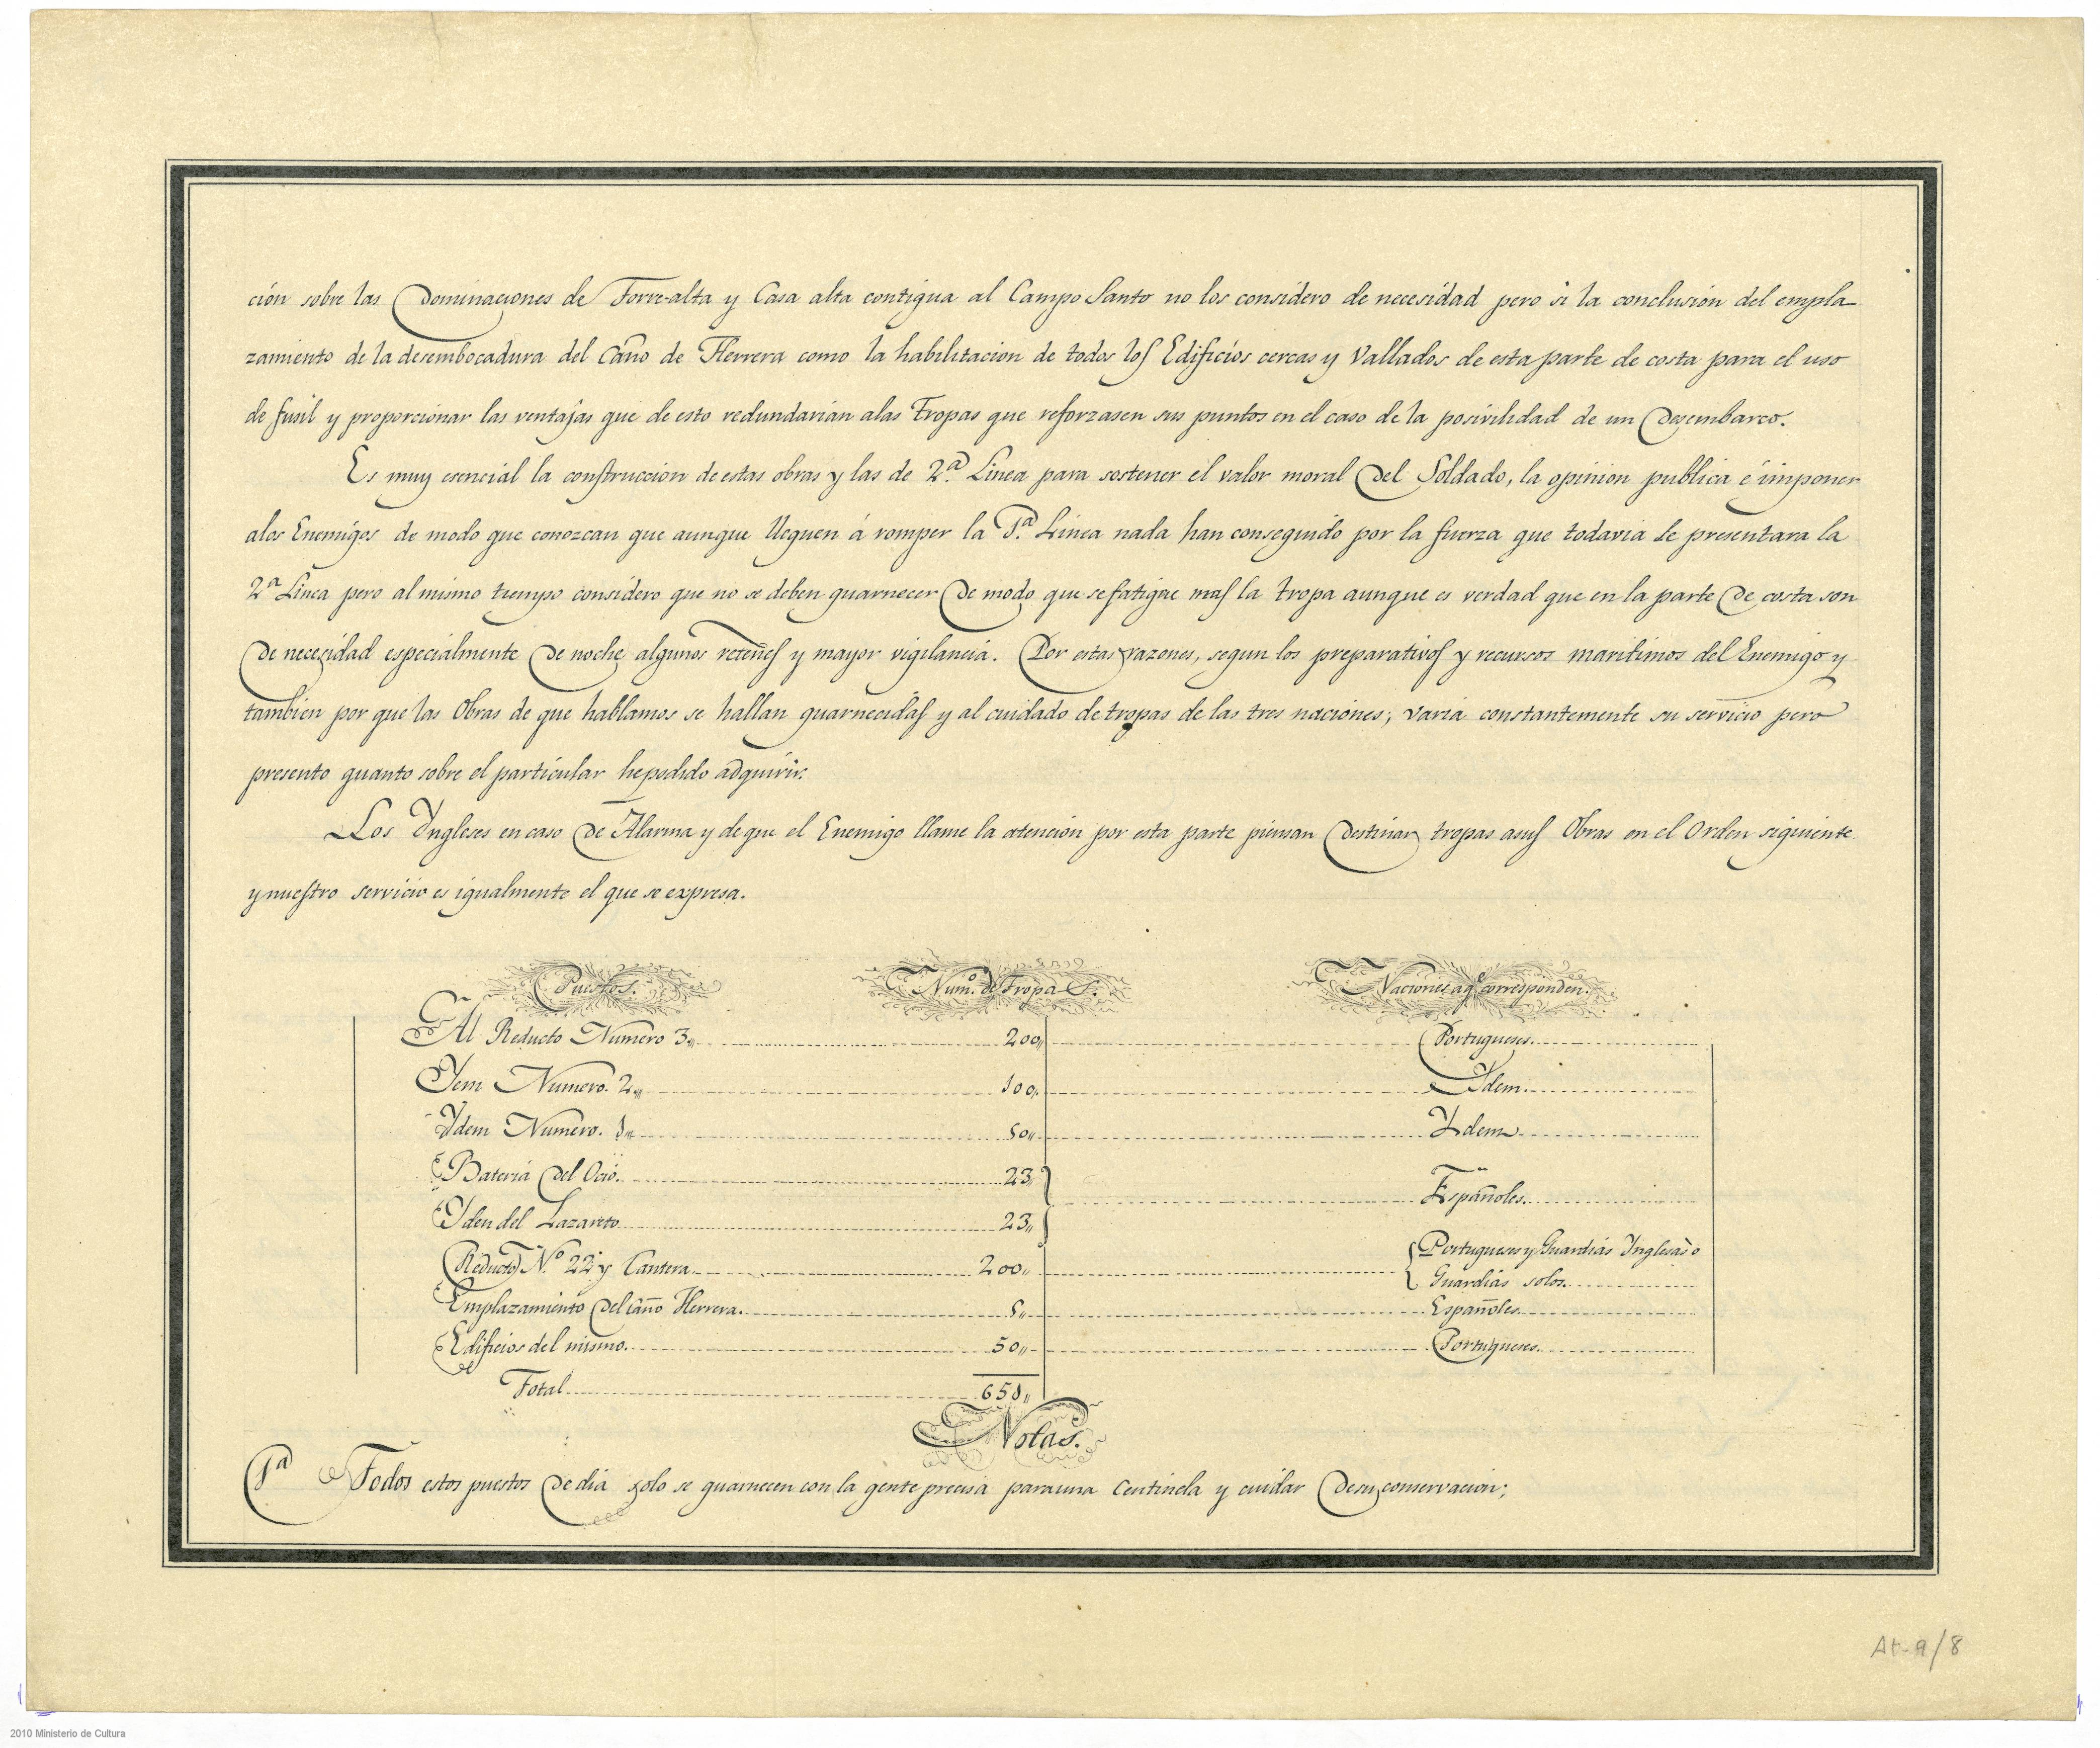 ción sobre las Dominaciones de Torre-alta y Casa alta contigua al Campo Santo no los considero de necesidad pero si la conclusión del empla
zamiento de la desembocadura del Caño de Herrera como la habilitacion de todos los Edificios cercas y Vallados de esta parte de costa para el uso
de fusil y proporcionar las ventajas que de esto redundarian alas Tropas que reforzasen sus puntos en el caso de la posivilidad de un Desembarco.
Es muy esencial la construccion de estas obras y las de 2.ª Linea para sostener el valor moral del Soldado, la opinion publica é imponer
alos Enemigos de modo que conozcan que aunque lleguen á romper la 1.ª Linea nada han conseguido por la fuerza que todavia se presentara la
2.ª Linea pero al mismo tiempo considero que no se deben guarnecer de modo que se fatigue mas la tropa aunque es verdad que en la parte de costa son
de necesidad especialmente de noche algunos reteñes y mayor vigilancia. Por estas razones, segun los preparativos y recursos maritimos del Enemigo y
tambien por que las Obras de que hablamos se hallan guarnecidas y al cuidado de tropas de las tres naciones, varia constantemente su servicio pero
presento quanto sobre el particular he podido adquirir.
Los Yngleses en caso de Alarma y de que el Enemigo llame la atencion por esta parte piensan destinar tropas asus Obras en el Orden siguiente
y nuestro servicio es igualmente el que se expresa.
Puestos. Num.º de Tropas. Naciones aq.e corresponden.
Al Reducto Numero 3,, 200,, Portugueses.
Yem Numero. 2,, 100,, Ydem.
Ydem Numero. 1,, 50,, Ydem
Bateria del Ocio. 23,,
Españoles.
Yden del Lazareto 23,,
Reducto N.º 22 y Cantera 200,, Portugueses y Guardias Inglesas o
Guardias solos.
Emplazamiento del caño Herrera. 5,, Españoles.
Edificios del mismo. 50,, Portugueses.
Total 651,,
Notas.
1.ª Todos estos puestos de dia solo se guarnecen con la gente precisa para una Centinela y cuidar de su conservacion;
At-9/8
2010 Ministerio de Cultura